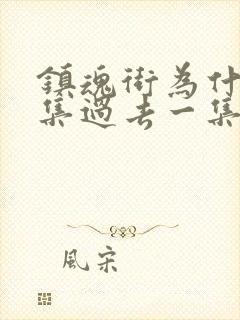 鎮魂街為什
集過去一集
風宋